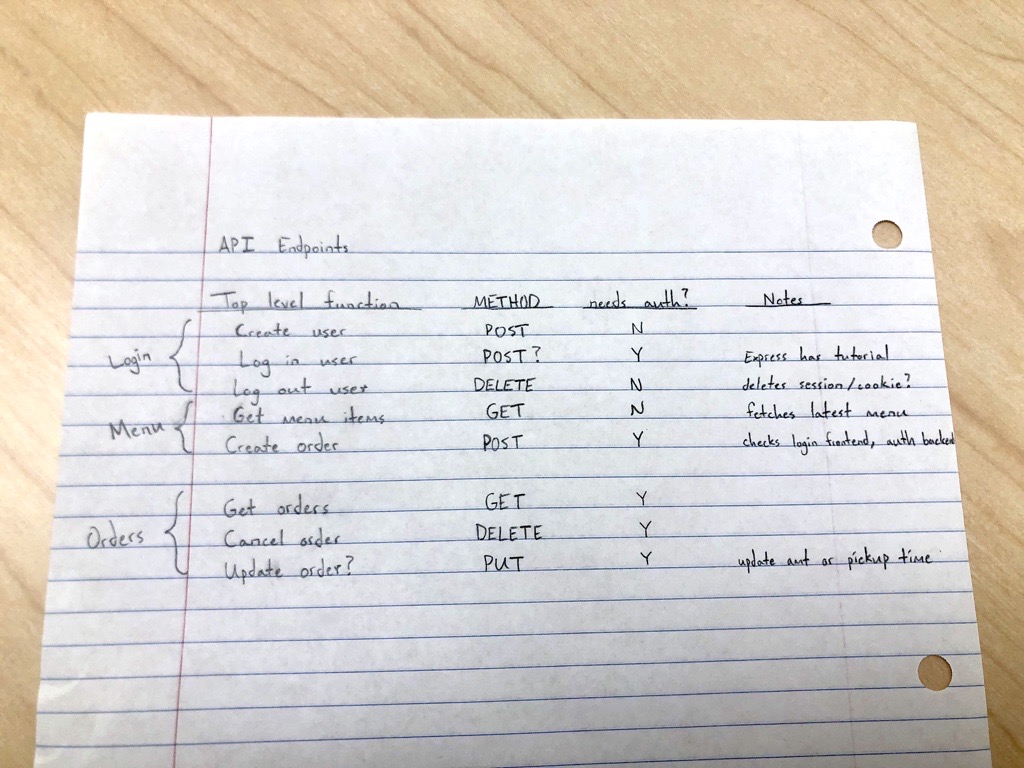 API Endpoints
Top level function METHOD needs auth? Notes
Create user POST N
Login Log in user POST? Y Express has tutorial
Log out user DELETE N deletes session/cookie?
Get menu items GET N fetches latest menu
Menu Create order POST Y checks login frontend, auth backed
Get orders GET Y
Orders Cancel order DELETE Y
Update order? PUT Y update amt or pickup time